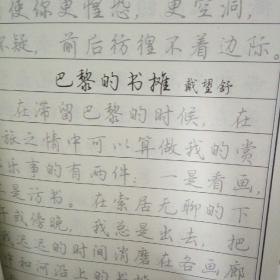 使你更惶恐，更空洞，
不疑，前后彷徨不着边际。
巴黎的书摊 戴望舒
在滞留巴黎的时候，在
旅之情中可以算做我的赏
乐事的有两件：一是看画，
是访书。在索居无聊的下
午或傍晚，我总是出去，把
我迟迟的时间消磨在各画廊
中和河沿上的书摊